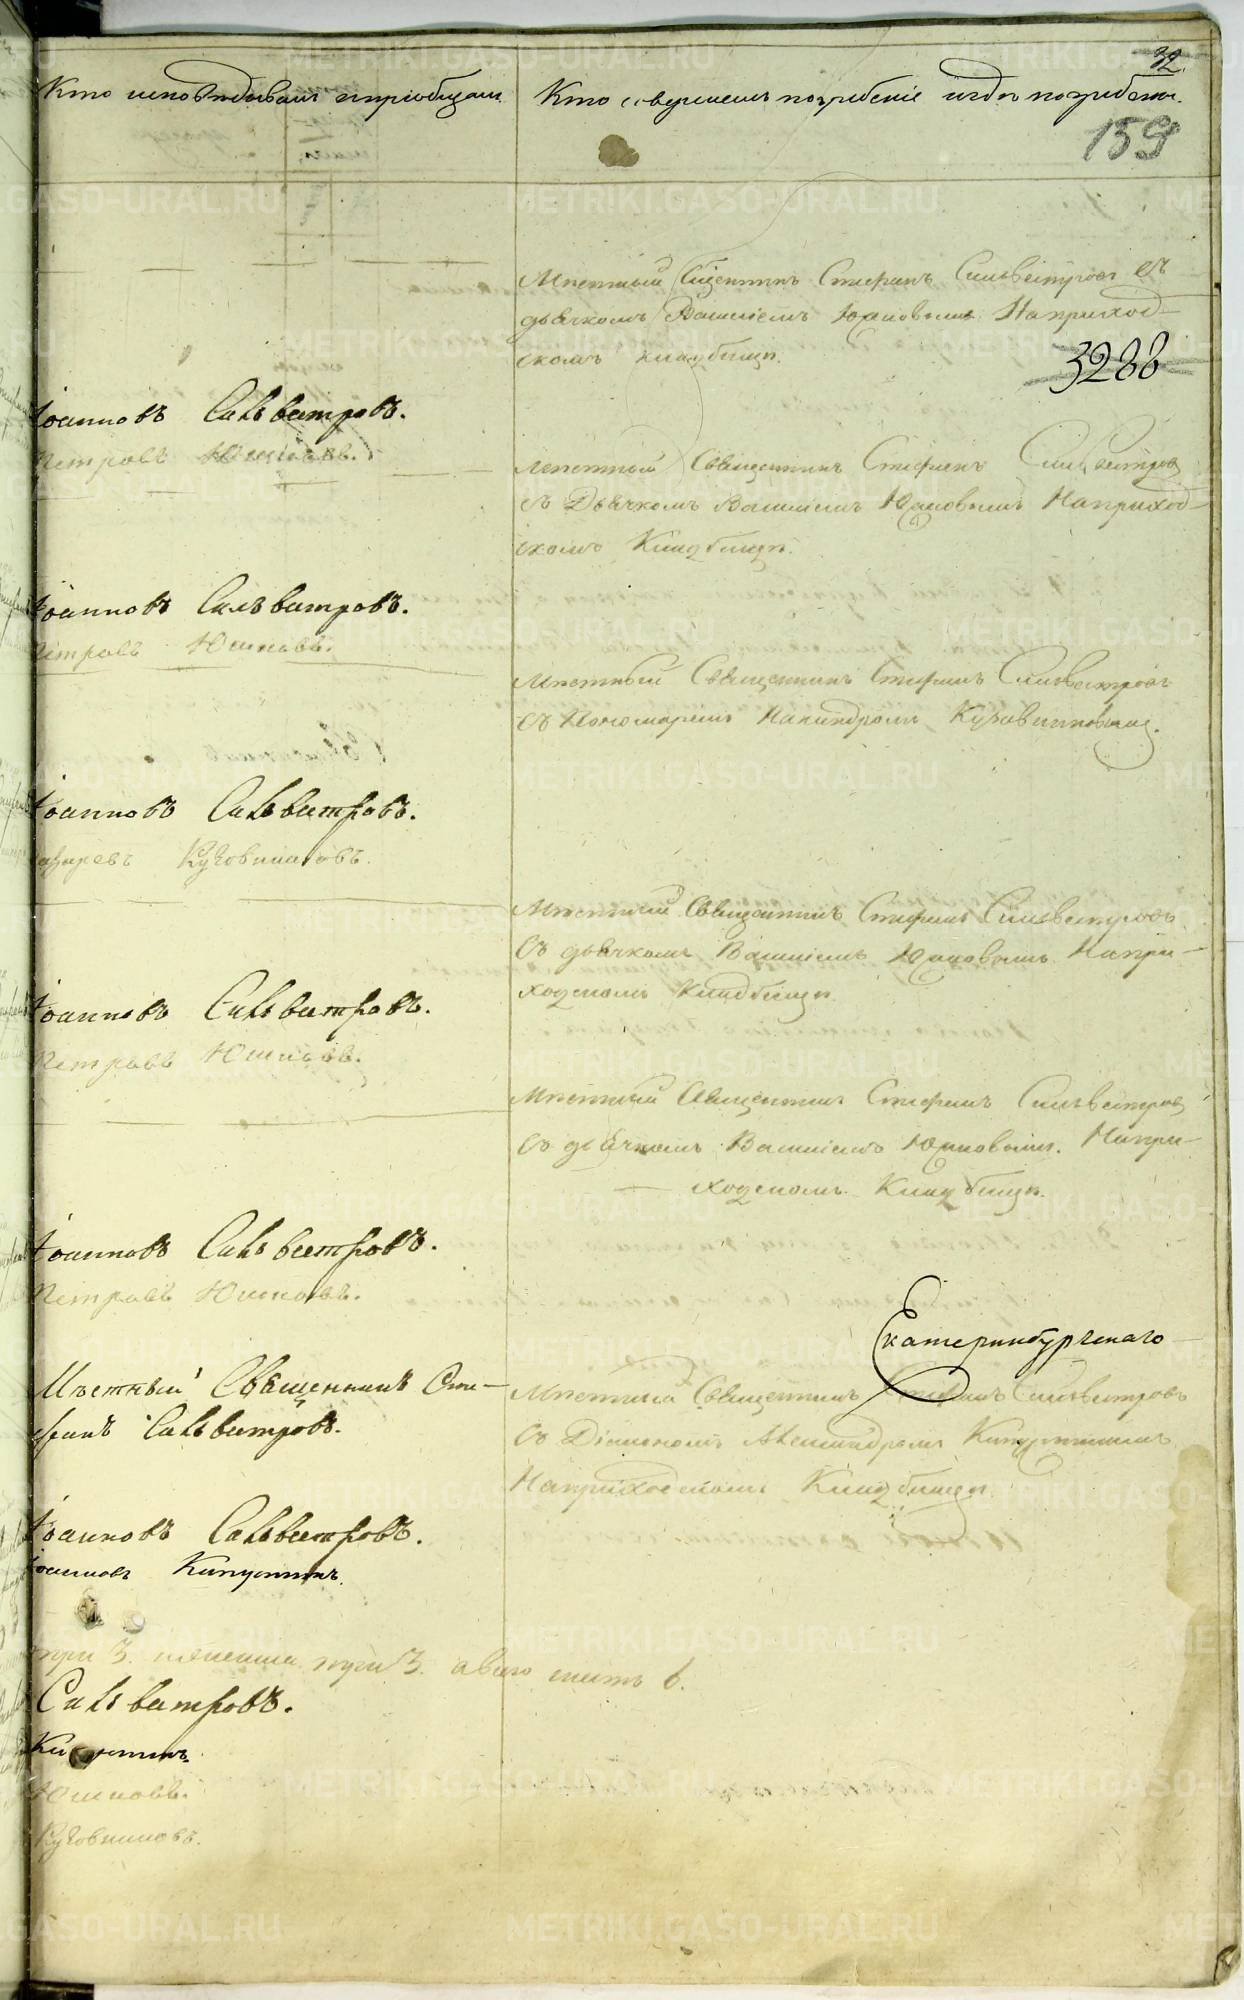 32
Кто исповѣдывалъ и пріобщалъ
Кто совершалъ погребеніе и гдѣ погребены.
159
Мѣстный Священникъ Стефанъ Сильвестровъ съ
дьячкомъ Василіемъ Юшновымъ На приход-
скомъ кладбищѣ.
3288
Іоанновъ Сильвестровъ.
Петровъ Юшковъ.
Мѣстный Священникъ Стефанъ Сильвестровъ
съ Дьячкомъ Василіемъ Юшковымъ На приход-
скомъ Кладбищѣ.
Іоанновъ Сильвестровъ.
Петровъ Юшковъ.
Мѣстный Священникъ Стефанъ Сильвестровъ
съ Пономаремъ Кузовниковымъ.
Іоанновъ Сильвестровъ.
Кузовниковъ.
Мѣстный Священникъ Стефанъ Сильвестровъ
Съ дьячкомъ Василіемъ Юшковымъ На при-
ходскомъ Кладбищѣ
Іоанновъ Сильвестровъ.
Петровъ Юшковъ.
Мѣстный Священникъ Стефанъ Сильвестровъ
Съ дьячкомъ Василіемъ Юшковымъ. На при-
ходскомъ Кладбищѣ.
Іоанновъ Сильвестровъ.
Петровъ Юшковъ.
Екатеринбургскаго
Мѣстный Священникъ Сте-
фанъ Сильвестровъ.
Мѣстный Священникъ Стефанъ Сильвестровъ
Съ Діакономъ Кипуртинымъ
На приходскомъ Кладбищѣ
Іоанновъ Сильвестровъ.
Іоанновъ
3. 3. а всего шесть 6.
Сильвестровъ.
Юшковъ.
Кузовниковъ.
METRIKI.GASO-URAL.RU